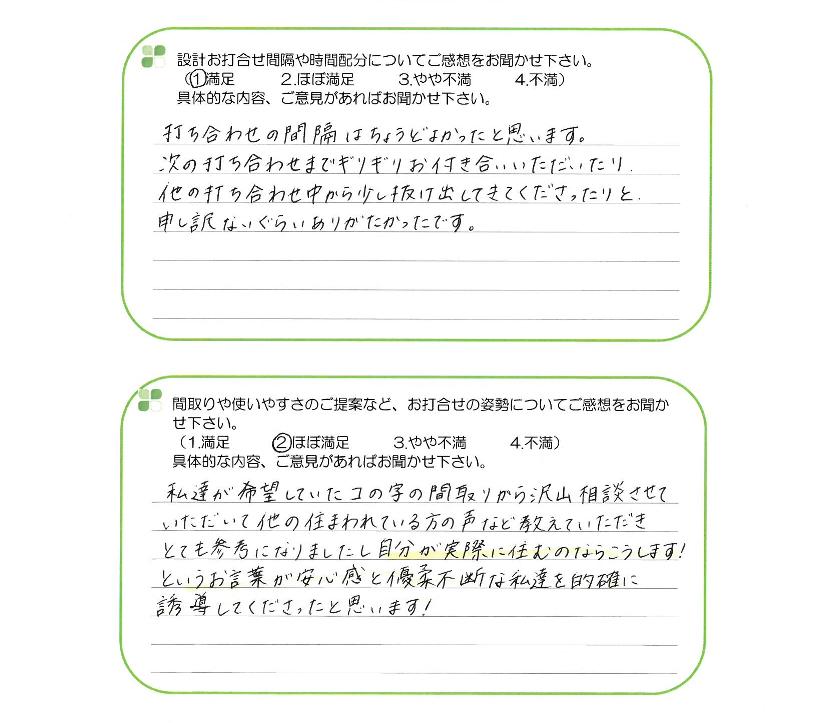 設計お打合せ間隔や時間配分についてご感想をお聞かせ下さい。
（①満足　2.ほぼ満足　3.やや不満　4.不満）
具体的な内容、ご意見があればお聞かせ下さい。
打ち合わせの間隔はちょうどよかったと思います。
次の打ち合わせまでギリギリお付き合いいただいたり、
他の打ち合わせ中から少し抜け出してきてくださったりと、
申し訳ないぐらいありがたかったです。
間取りや使いやすさのご提案など、お打合せの姿勢についてご感想をお聞か
せ下さい。
（1.満足　②ほぼ満足　3.やや不満　4.不満）
具体的な内容、ご意見があればお聞かせ下さい。
私達が希望していたコの字の間取りから沢山相談させて
いただいて他の住まわれている方の声など教えていただき
とても参考になりましたし自分が実際に住むのならこうします!
というお言葉が安心感と優柔不断な私達を的確に
誘導してくださったと思います!